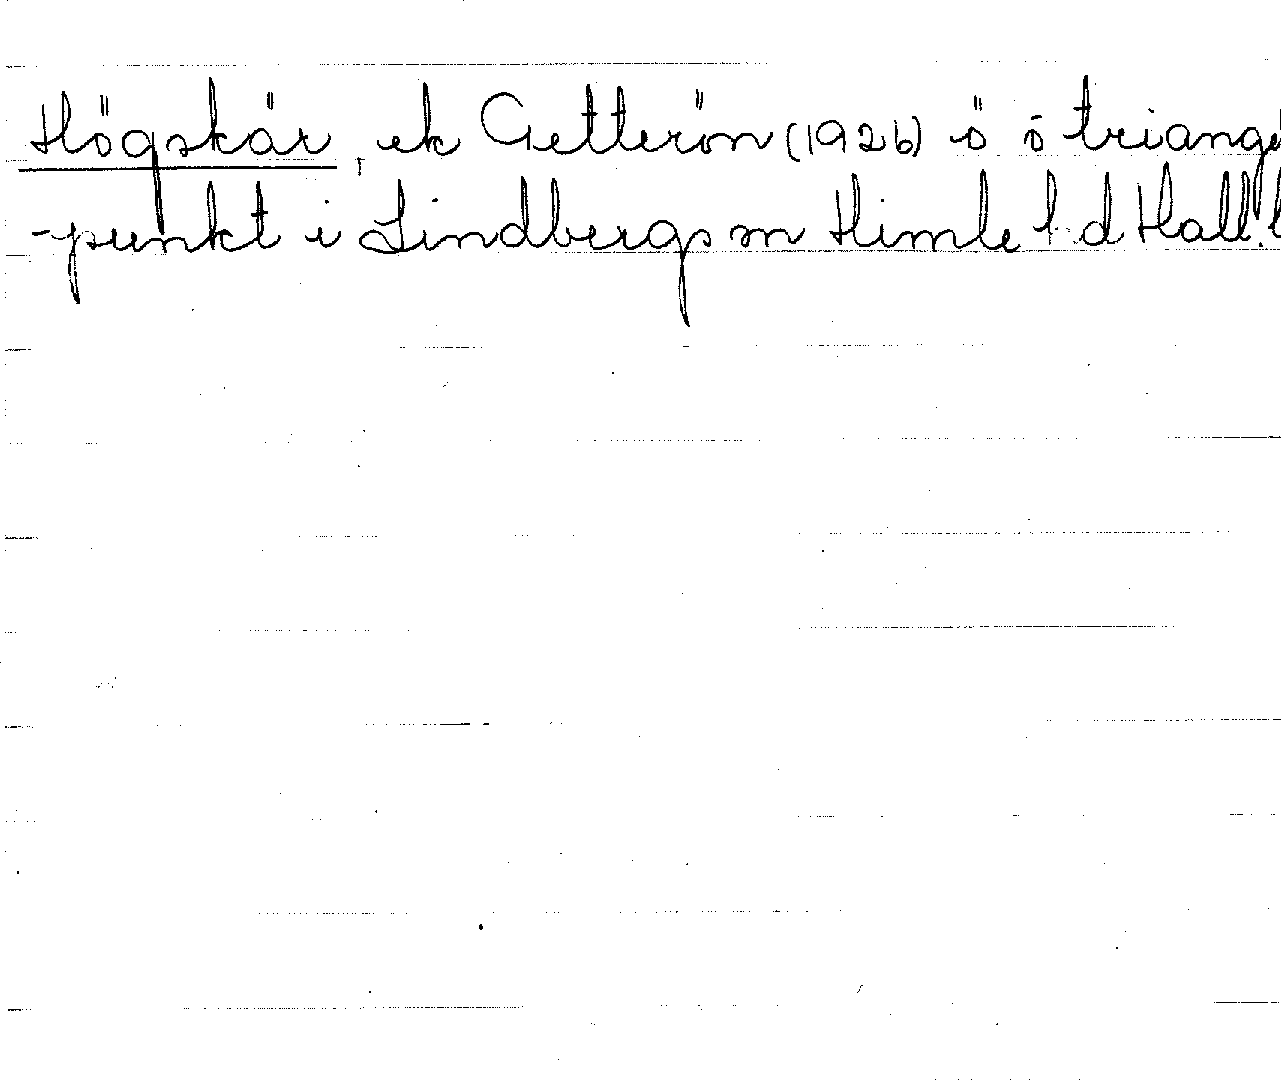 Högskär, ek Getterön (1926) ö ö triang
-punkt i Lindbergs sn Himle hd Hall.l